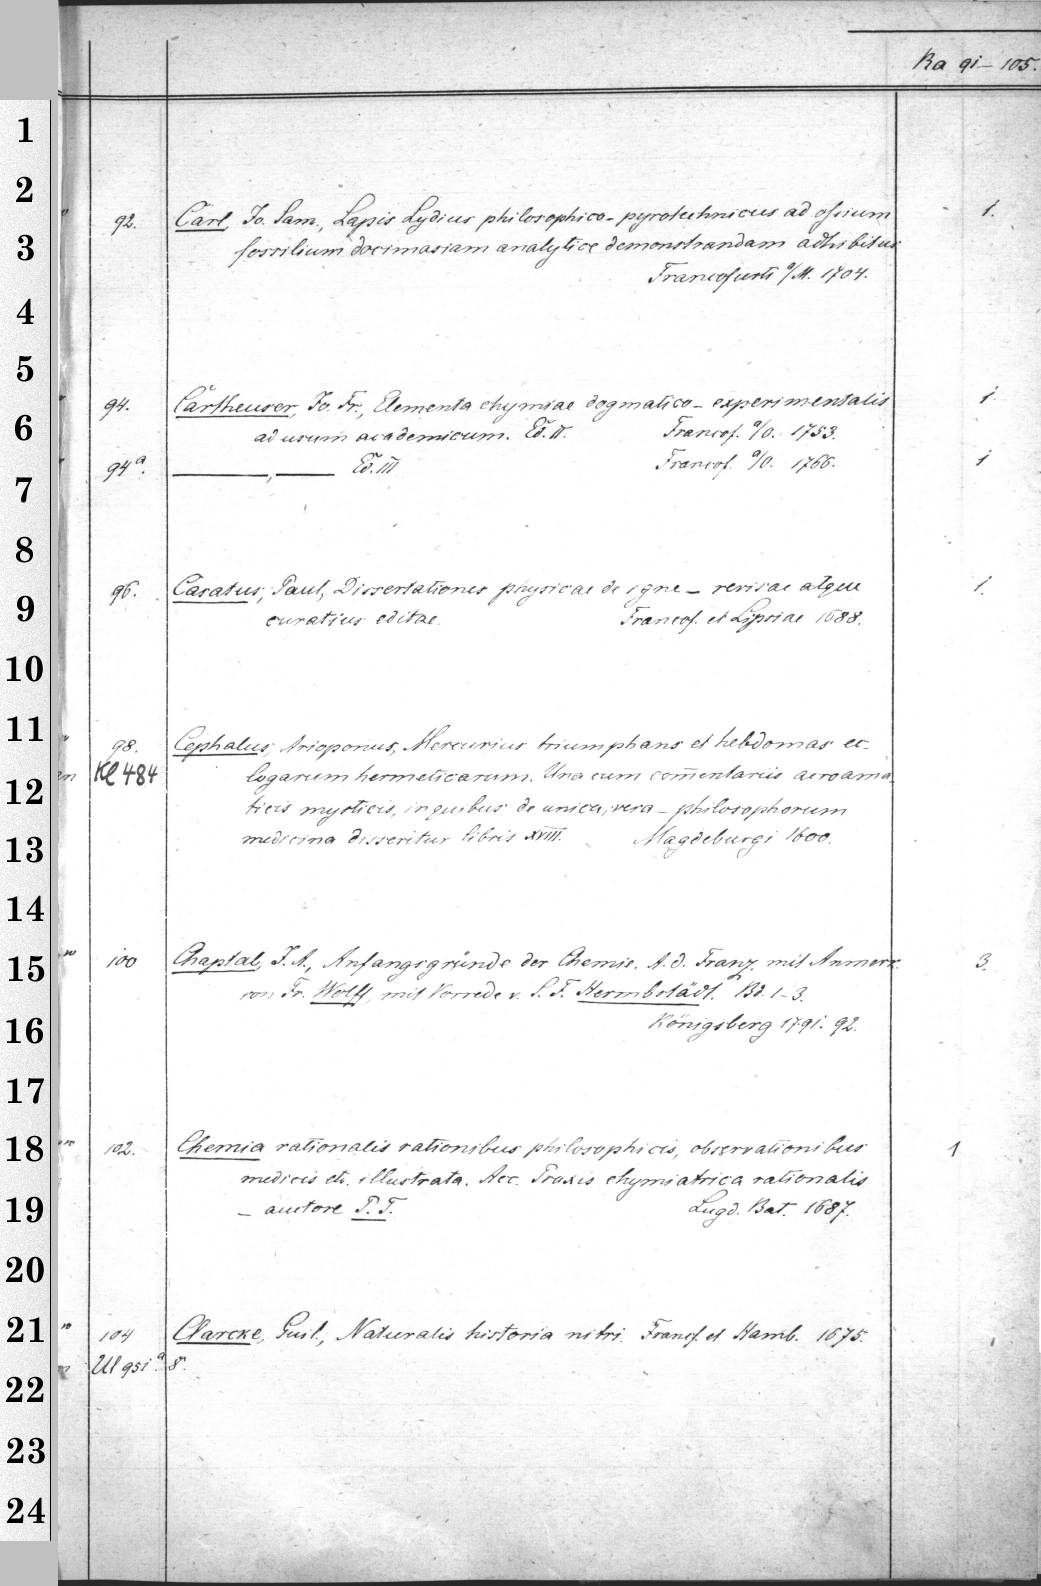 Ra 91–105.
1
2
92. Carl, Jo. Sam., Lapis Lydius philosophico-pyrotechnicus ad ossium 1.
3 fossilium docimasiam analytice demonstrandam adhibitus
Francofurti a/M. 1704.
4
5
94. Cartheuser, Jo. Fr., Elementa chymiae dogmatico-experimentalis 1.
6 ad usum academicum. Ed. II. Francof. a/O. 1753.
94a. ———, ——— Ed. III Francof. a/O. 1766. 1
7
8
96. Casatus, Paul, Dissertationes physicae de igne – revisae atque 1.
9 curatius editae. Francof. et Lipsiae 1688.
10
11
98. Cephalus, Arioponus, Mercurius triumphans et hebdomas ec-
Kl 484 logarum hermeticarum. Una cum commentariis acroama-
12 ticis mysticis, in quibus de unica, vera – philosophorum
13 medicina disseritur libris XVIII. Magdeburgi 1600.
14
15 100 Chaptal, J. A., Anfangsgründe der Chemie. A. d. Franz. mit Anmerk. 3.
von Fr. Wolff, mit Vorrede v. S. F. Hermbstädt. Bd. 1–3.
16 Königsberg 1791. 92.
17
18 102. Chemia rationalis rationibus philosophicis, observationibus 1
medicis etc. illustrata. Acc. Praxis chymiatrica rationalis
19 – auctore P. T. Lugd. Bat. 1687.
20
21 104 Clarcke, Guil., Naturalis historia nitri. Francf. et Hamb. 1675.
Ul 951a. 8°.
22
23
24